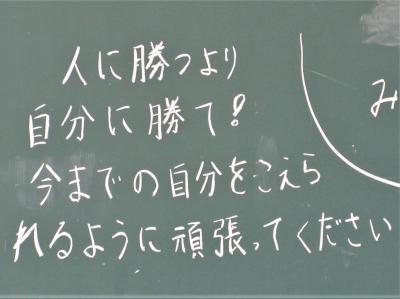 人に勝つより
自分に勝て!
今までの自分をこえら
れるように頑張ってください
み